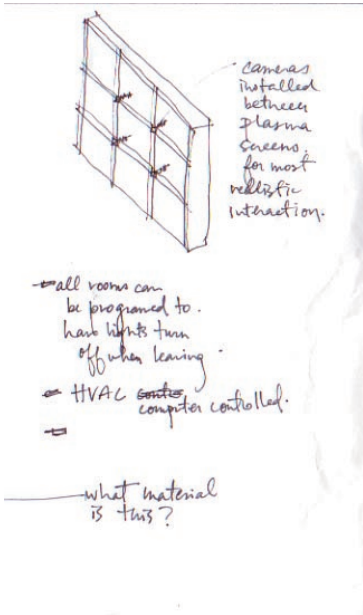 cameras
installed
between
plasma
screens.
for most
realistic
interaction.
all rooms can
be programed to.
have lights turn
off when leaving.
HVAC contro
computer controlled.
what material
is this?